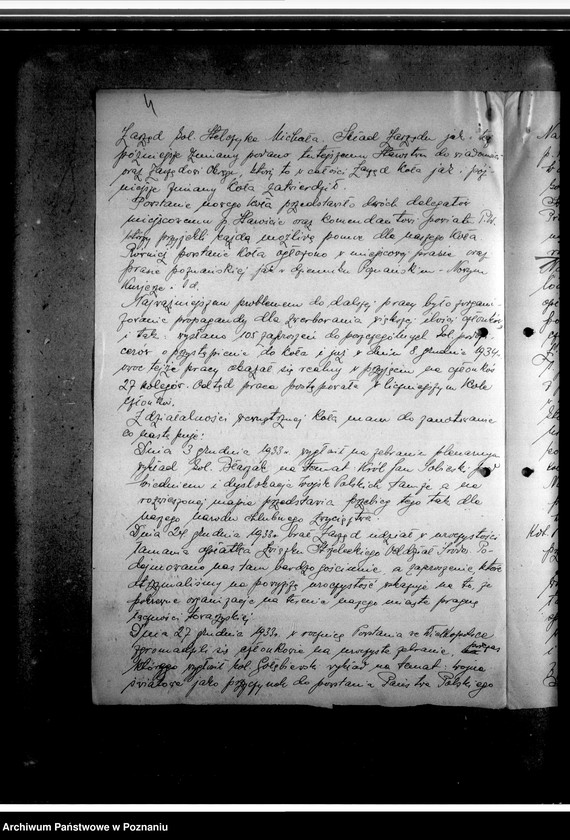 4
Zarząd kol. Stołczyka Michała. Skład Zarządu jak i
późniejsze zmiany podano tutejszemu Starostwu do wiadomości
oraz Zarządowi Okręgu, który to w całości Zarząd Koła jak i póź-
niejsze zmiany Koła zatwierdził.
Powstanie nowego Koła przedstawiło dwóch delegatów
miejscowemu p. Staroście oraz komendantowi powiat. P.W.
którzy przyjęli każdą możliwą pomoc dla naszego Koła
Również powstanie Koła ogłoszono w miejscowej prasie oraz
prasie poznańskiej jak w dzienniku Poznańskim - Nowym
Kurjerze i t d.
Najważniejszem problemem do dalszej pracy było zorgani-
zowanie propagandy dla zwerbowania większej ilości członków,
i tak: wysłano 105 zaproszeń do poszczególnych kol. podofi-
cerów o przystąpienie do Koła i już w dniu 8 grudnia 1934.
owoc tejże pracy okazał się realny w przyjęciu na członków
27 kolegów. Odtąd praca postępowała w liczniejszym Kole
członków.
Z działalności zewnętrznej Koła mam do zanotowania
co następuje:
Dnia 3 grudnia 1933r. wygłosił na zebraniu plenarnym
wykład kol. Błaszak na temat Król Jan Sobieski pod
Wiedniem i dyslokacje wojsk Polskich tamże a na
rozwieszonej mapie przedstawia przebieg tego tak dla
naszego narodu chlubnego zwycięstwa.
Dnia 24 grudnia 1933r. brał Zarząd udział w uroczystości
łamania opłatka Związku Strzeleckiego Oddział Środa. Po-
dejmowano nas tam bardzo gościnnie a zaproszenie, które
otrzymaliśmy na powyższą uroczystość wskazuje na to, że
pokrewne organizacje na terenie naszego miasta pragną
łączności towarzyskiej.
Dnia 27 grudnia 1933r. w rocznicę Powstania w Wielkopolsce
zgromadzili się członkowie na uroczyste zebranie, podczas
którego wygłosił kol. Gołębiewski wykład na temat: wojna
światowa jako przyczynek do powstania Państwa Polskiego
Archiwum Państwowe w Poznaniu